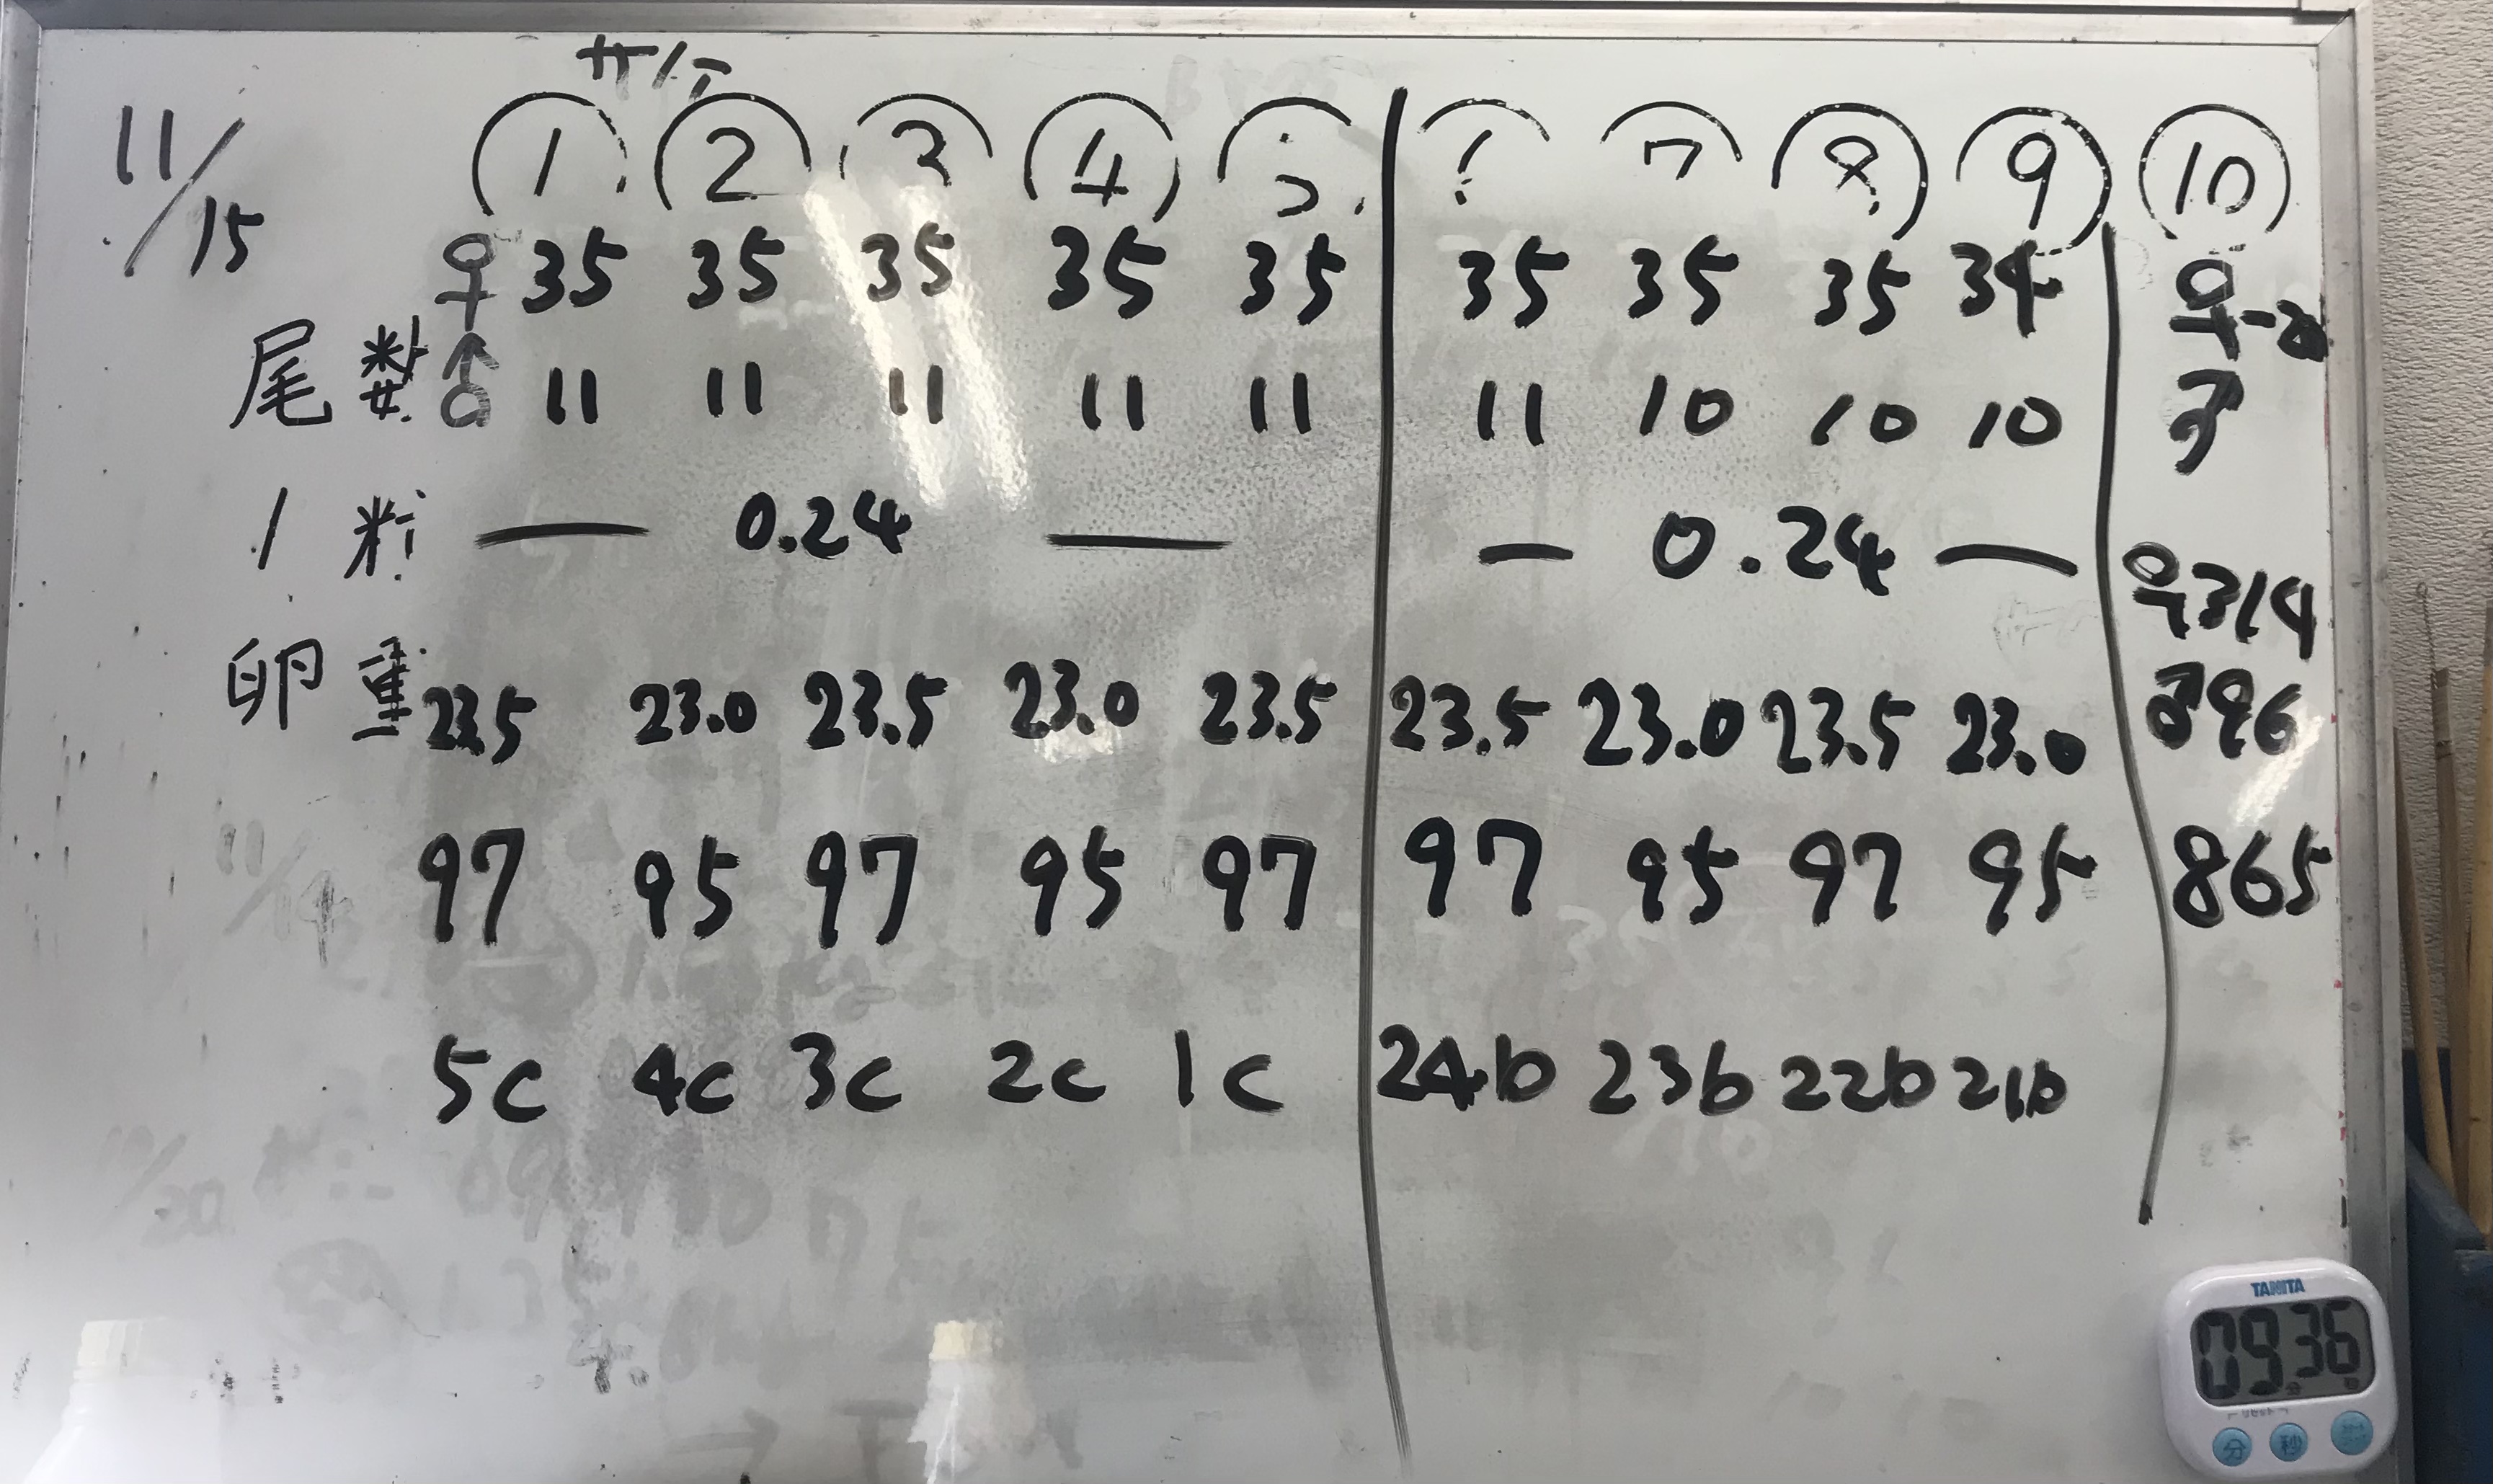 11/15 ① ② ③ ④ ⑧ ⑨ ⑩
♀ 35 35 35 35 35 35 35 35 34 ♀
尾数 ♂ 11 11 11 11 11 11 10 10 10 ♂
1粒 — 0.24 — — 0.24 — ♀314
卵重 23.5 23.0 23.5 23.0 23.5 23.5 23.0 23.5 23.0 ♂96
97 95 97 95 97 97 95 97 95 865
11/14
5c 4c 3c 2c 1c 24b 23b 22b 21b
TANITA
09 36
分 秒